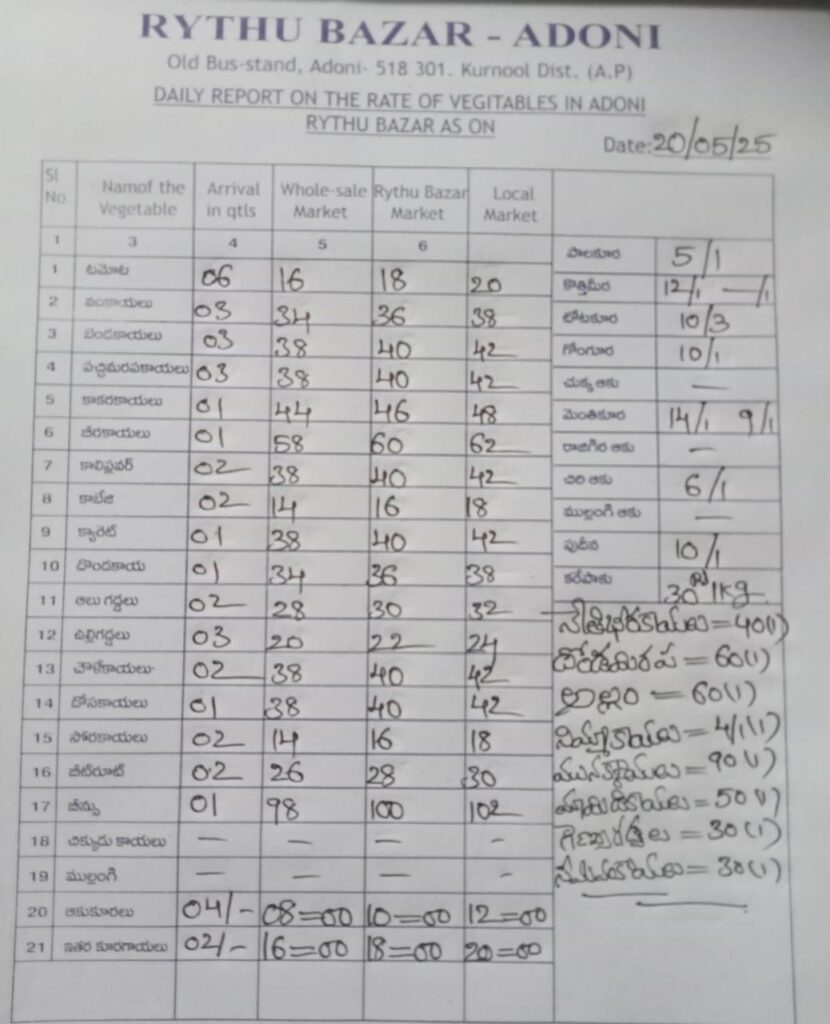 RYTHU BAZAR - ADONI
Old Bus-stand, Adoni- 518 301. Kurnool Dist. (A.P)
DAILY REPORT ON THE RATE OF VEGITABLES IN ADONI
RYTHU BAZAR AS ON
Date: 20/05/25
Sl No. Namof the Vegetable Arrival in qtls Whole-sale Market Rythu Bazar Market Local Market
1 3 4 5 6
1 టమోట 06 16 18 20
2 వంకాయలు 03 34 36 38
3 బెండకాయలు 03 38 40 42
4 పచ్చిమిరపకాయలు 03 38 40 42
5 కాకరకాయలు 01 44 46 48
6 బీరకాయలు 01 58 60 62
7 కాలిఫ్లవర్ 02 38 40 42
8 కాబేజి 02 14 16 18
9 క్యారెట్ 01 38 40 42
10 దొండకాయ 01 34 36 38
11 ఆలు గడ్డలు 02 28 30 32
12 ఉల్లిగడ్డలు 03 20 22 24
13 చౌళేకాయలు 02 38 40 42
14 దోసకాయలు 01 38 40 42
15 సోరకాయలు 02 14 16 18
16 బీట్‌రూట్ 02 26 28 30
17 బీన్సు 01 98 100 102
18 చిక్కుడు కాయలు — — -
19 ముల్లంగి — — -
20 ఆకుకూరలు 04/- 08=00 10=00 12=00
21 ఇతర కూరగాయలు 02/- 16=00 18=00 20=00
పాలకూర 5/1
కొత్తిమీర 12/1 —/1
తోటకూర 10/3
గోంగూర 10/1
చుక్క ఆకు —
మెంతికూర 14/1 9/1
రాజగిర ఆకు —
చిరి ఆకు 6/1
ముల్లంగి ఆకు —
పుదీన 10/1
కరేపాకు 30 1kg
= 40(1)
= 60(1)
అల్లం = 60(1)
నిమ్మకాయలు = 4/1(1)
మునక్కాయలు = 90(1)
మామిడికాయలు = 50(1)
= 30(1)
= 30(1)